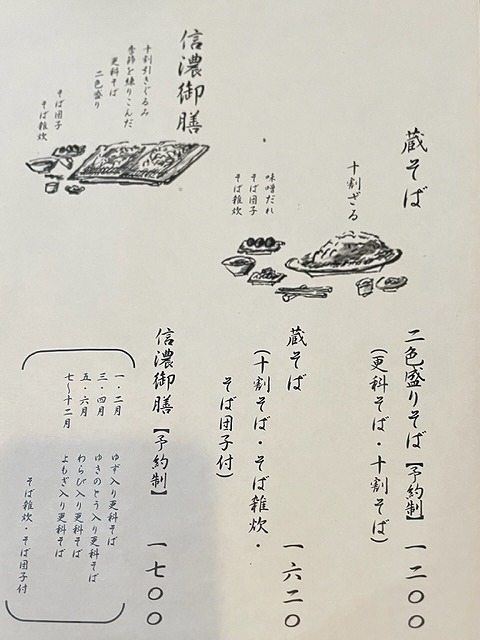 蔵そば
十割ざる
味噌だれ
そば団子
そば雑炊
信濃御膳
十割引きぐるみ
季節を練りこんだ
更科そば
二色盛り
そば団子
そば雑炊
二色盛りそば【予約制】 一二〇〇
(更科そば・十割そば)
蔵そば 一六二〇
(十割そば・そば雑炊・
そば団子付)
信濃御膳【予約制】 一七〇〇
一・二月 ゆず入り更科そば
三・四月 ゆきのとう入り更科そば
五・六月 わらび入り更科そば
七〜十二月 よもぎ入り更科そば
そば雑炊・そば団子付